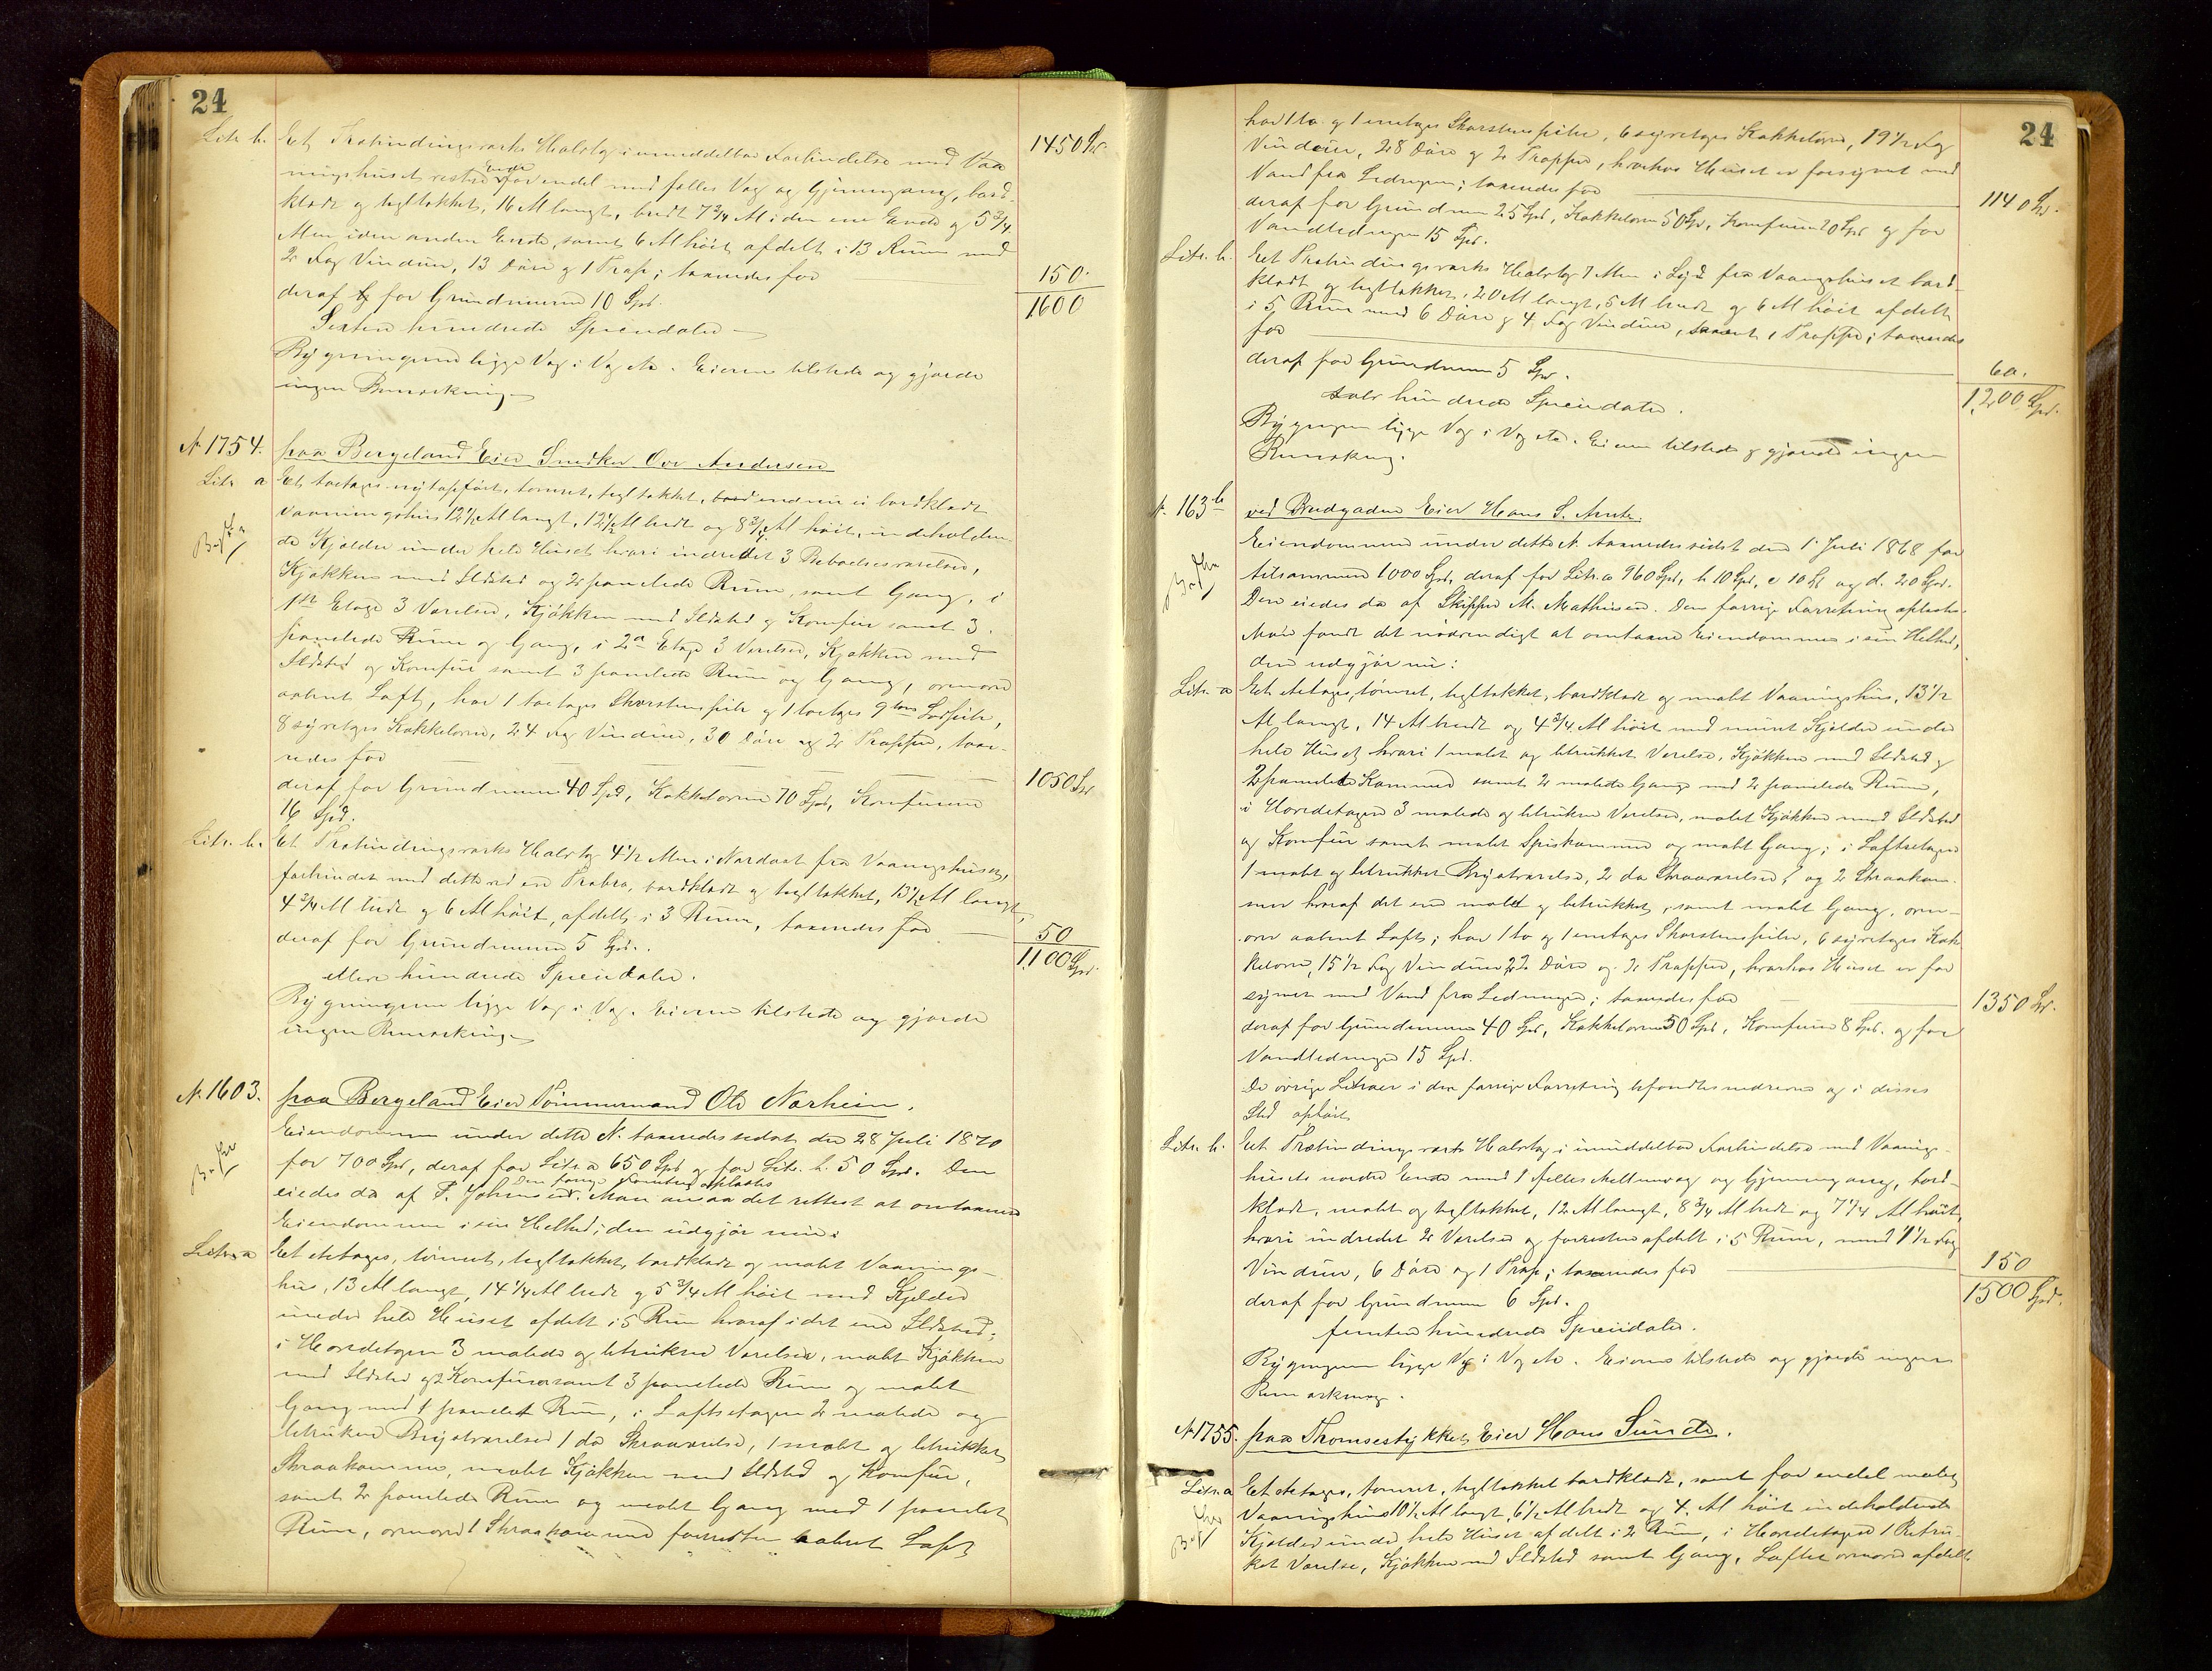 24
Litr b. Et Træbindingsværks Halvtag i umiddelbar Forbindelse med Vaa-
ningshuset restre for endel med fælles Væg og Gjennemgang, bord-
klædt og tegltækket, 16 Al langt, bredt 7 3/4 Al i den ene Ende og 5 3/4
Alen i den anden Ende, samt 6 Al höit afdelt i 13 Rum med
2 Fag Vinduer, 13 Döre og 1 Trap; taxeredes for
1450 Spd.
150.
deraf for Grundmuren 10 Spd.
1600
Sexten hundrede Speciedaler
Bygningerne ligge Væg i Væg etc. Eieren tilstede og gjorde
ingen Bemærkning
N. 1754. paa Bergeland Eier Snedker Ove Andersen
Litr a Et toetages nyopfört, tömret, tegltækket, endnu ei bordklædt
Vaaningshus 12 1/2 Al langt, 12 1/2 Al bredt og 8 3/4 Al höit, indeholden-
de Kjælder under hele Huset hvori indredet 3 Beboelsesværelser,
Kjøkken med Ildsted og 2 panelede Rum, samt Gang, i
1ste Etage 3 Værelser, Kjøkken med Ildsted og Komfur samt 3
panelede Rum og Gang, i 2den Etage 3 Værelser, Kjøkken med
Ildsted og Komfur samt 3 panelede Rum og Gang, ovenover
aabent Loft, har 1 toetages Skorstenspibe og 1 toetages Pibe,
8 syretages Kakkelovne, 24 Fag Vinduer, 30 Döre og 2 Trapper, taxe-
redes for
1050 Spd
deraf for Grundmuren 40 Spd, Kakkelovne 70 Spd, Komfurene
16 Spd.
Litr. b. Et Træbindingsværks Halvtag 4 1/2 Alen i Nordost fra Vaaningshuset,
forbundet med dette ved en Træbro, bordklædt og tegltækket, 13 1/2 Al langt,
4 3/4 Al bredt og 6 Al höit, afdelt i 3 Rum, taxeredes for
50
deraf for Grundmuren 5 Spd.
1100 Spd.
Elleve hundrede Speciedaler.
Bygningerne ligge Væg i Væg. Eieren tilstede og gjorde
ingen Bemærkning
N. 1603. paa Bergeland Eier Tömmermand Ole Norheim.
Eiendommen under dette N. taxeredes sidst den 28 Juli 1870
for 700 Spd, deraf for Litr a 650 Spd og for Litr. b. 50 Spd. Den
Den forrige Forretning oplæstes
eiedes da af P. Johnsen. Man ansaa det rettest at omtaxere
Eiendommen i sin Helhed; den udgjör nu:
Litr. a Et etetages, tömret, tegltækket, bordklædt og malet Vaanings-
hus, 13 Al langt, 14 1/4 Al bredt og 5 3/4 Al höit med Kjelder
under hele Huset afdelt i 5 Rum hvoraf i det ene Ildsted;
i Hovedetagen 3 malede og betrukne Værelser, malet Kjøkken
med Ildsted og Komfur samt 3 panelede Rum og malet
Gang med 1 panelet Rum, i Loftsetagen 2 malede og
betrukne Brystværelser 1 do Skraaværelse, 1 malet og betrukket
Skraakammer, malet Kjøkken med Ildsted og Komfur,
samt 2 panelede Rum og malet Gang med 1 panelet
Rum, ovenover 1 Skraakammer forresten aabent Loft
24
har 1 to og 1 enetages Skorstenspibe, 6 syretages Kakkelovne, 19 1/2 Fag
Vinduer, 28 Döre og 2 Trapper, hvorhos Huset er forsynet med
Vand fra Ledningen; taxeredes for
1140 Spd.
deraf for Grundmuren 25 Spd, Kakkelovne 50 Spd, Komfurene 20 Spd og for
Vandledningen 15 Spd.
Litr. b. Et Træbindingsværks Halvtag 7 Alen i Syd fra Vaaningshuset bord-
klædt og tegltækket, 20 Al langt, 5 Al bredt og 6 Al höit afdelt
i 5 Rum med 6 Döre og 4 Fag Vinduer, samt 1 Trappe; taxeredes
for
60.
deraf for Grundmuren 5 Spd.
1200 Spd.
Tolv hundrede Speciedaler.
Bygningen ligge Væg i Væg etc. Eieren tilstede og gjorde ingen
Bemærkning.
N. 163b ved Bredgaden Eier Hans S.
Eiendommen under dette N. taxeredes sidst den 1 Juli 1868 for
tilsammen 1000 Spd, deraf for Litr. a 960 Spd, b 10 Spd, c 10 Spd og d. 20 Spd.
Den eiedes da af Skipper M. Mathiesen. Den forrige Forretning oplæstes.
Man fandt det nödvendigt at omtaxere Eiendommen i sin Helhed,
den udgjör nu:
Litr. a Et etetages, tömret, tegltækket, bordklædt og malet Vaaningshus, 13 1/2
Al langt, 14 Al bredt og 4 3/4 Al höit med muret Kjelder under
hele Huset hvori 1 malet og betrukket Værelse, Kjøkken med Ildsted og
2 panelede Kammer samt 2 malede Gange med 2 panelede Rum,
i Hovedetagen 3 malede og betrukne Værelser, malet Kjøkken med Ildsted
og Komfur samt malet Spiskammer og malet Gang; i Loftsetagen
1 malet og betrukket Brystværelse, 2 do Skraaværelser, og 2 Skraakam-
mer hvoraf det ene malet og betrukket, samt malet Gang, oven-
over aabent Loft; har 1 to og 1 enetages Skorstenspibe, 6 syretages Kak-
kelovne, 15 1/2 Fag Vinduer 22 Döre og 2 Trapper, hvorhos Huset er for-
synet med Vand fra Ledningen; taxeredes for
1350 Spd.
deraf for Grundmuren 40 Spd, Kakkelovne 50 Spd, Komfuren 8 Spd. og for
Vandledningen 15 Spd.
De övrige Litraer i den forrige Forretning befandtes nedrevne og i disses
Sted opfört
Litr. b. Et Træbindingsværks Halvtag i umiddelbar Forbindelse med Vaanings-
husets nordre Ende med 1 fælles Mellemvæg og Gjennemgang, bord-
klædt, malet og tegltækket, 12 Al langt, 8 3/4 Al bredt og 7 1/4 Al höit,
hvori indredet 2 Værelser og forresten afdelt i 5 Rum, med 1 1/2 Fag
Vinduer, 6 Döre og 1 Trap; taxeredes for
150
deraf for Grundmuren 6 Spd.
1500 Spd.
femten hundrede Speciedaler.
Bygningerne ligge Væg i Væg etc. Eieren tilstede og gjorde ingen
Bemærkning.
N. 1755. paa Thomsestykket Eier Hans Sunde.
Litr. a Et etetages, tömret, tegltækket bordklædt, samt for endel malet
Vaaningshus 10 1/2 Al langt, 6 1/2 Al bredt og 4 Al höit indeholdende
Kjælder under hele Huset afdelt i 2 Rum, i Hovedetagen 1 Betruk-
ket Værelse, Kjøkken med Ildsted samt Gang, Loftet ovenover afdelt